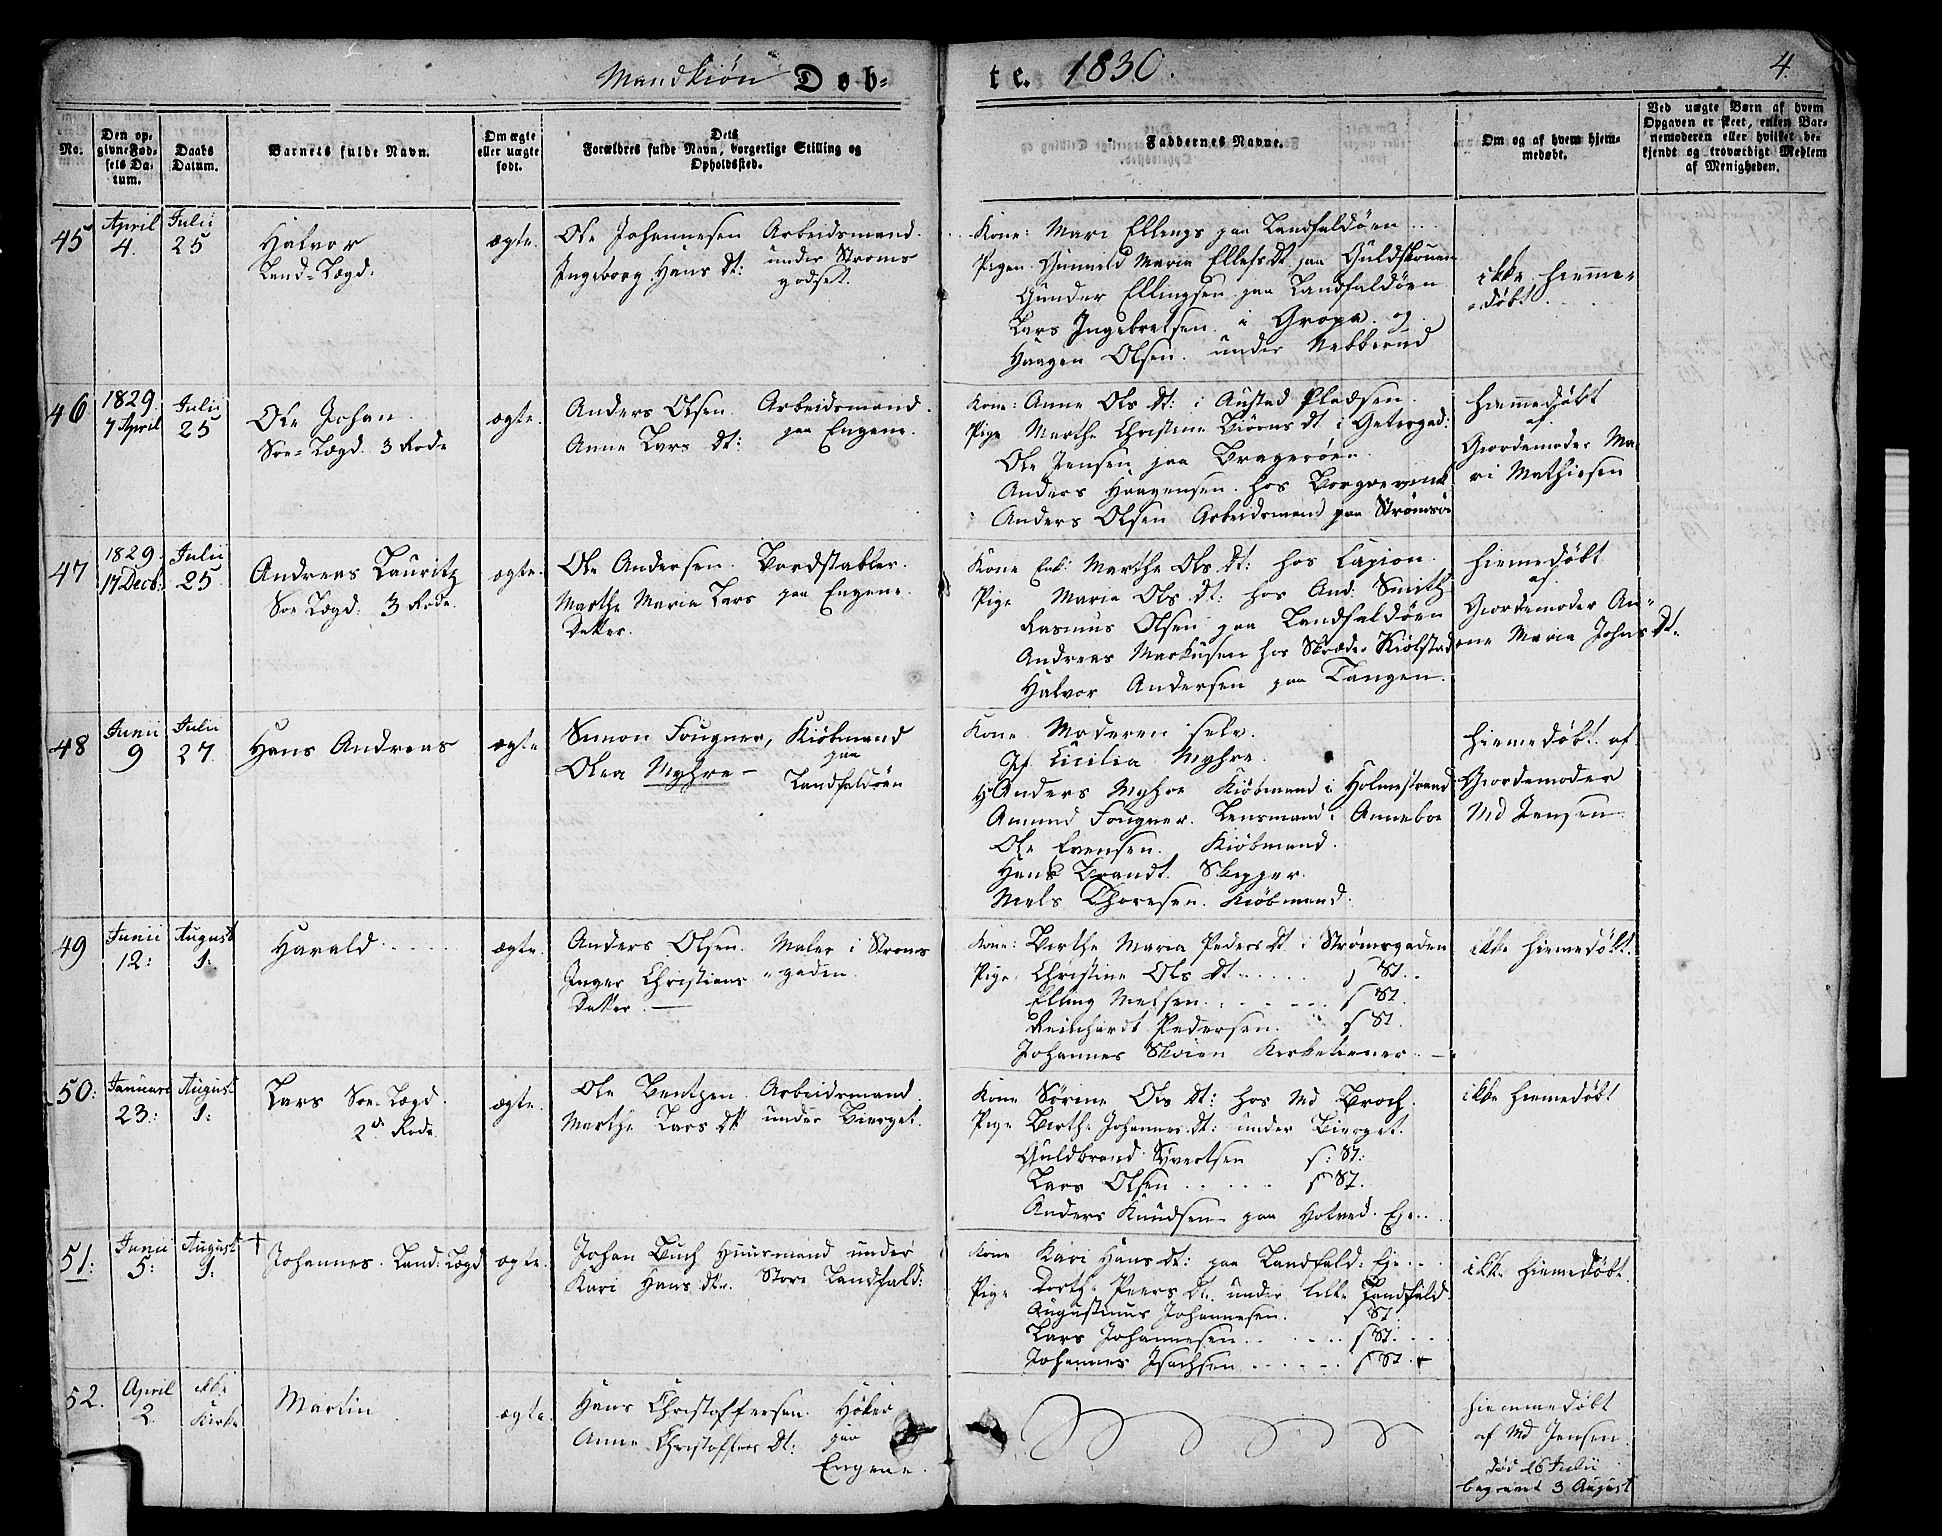 Mandkiön Døb-te. 1830. 4.
No.
Den opgivne Fødsels Datum.
Daabs Datum.
Barnets fulde Navn.
Om ægte eller uægte født.
Dets Forældres fulde Navn, borgerlige Stilling og Opholdssted.
Faddernes Navne.
Om og af hvem hjemmedøbt.
Ved uægte Børn af hvem Opgaven er skeet, enten Barnemoderen eller hvilket bekjendt og troværdigt Medlem af Menigheden.
45 April 4. Julii 25 Halvor ægte.
Land-Lægd.
Ole Johannesen Arbeidsmand
Ingeborg Hans Dt: under Strøms
godset.
Kone: Mari Ellings paa Landfaldøen
Pigen Gunnild Maria Ellefs Dt paa Guldskouen
Gunder Ellingsen paa Landfaldøen
Lars Ingebretsen i Gropa og
Haagen Olsen under Nebberud
ikke hiemme-
døbt
46 1829. 7 April Julii 25 Ole Johan ægte.
Søe-Lægd. 3 Rode
Anders Olsen. Arbeidsmand
Anne Lars Dt: paa Engene.
Kone: Anne Ols Dt: i Austad Pladsen.
Pige Marthe Christine Biørns Dt i
Ole Jensen paa Bragerøen
Anders Haagensen hos
Anders Olsen Arbeidsmand paa Strømsø
hiemmedøbt
af
Giordemoder Ma-
ri Mathiesen
47 1829. 17 Decb: Julii 25 Andreas Lauritz ægte.
Søe Lægd: 3 Rode.
Ole Andersen. Bordstabler.
Marthe Maria Lars paa Engene.
Datter.
Kone Enk: Marthe Ols Dt: hos
Pige Maria Ols Dt: hos And: Smith
Rasmus Olsen paa Landfaldøen
Andreas Markusen hos Skræder Kiølstad
Halvor Andersen paa Tangen.
hiemedøbt
af
Giordemoder An-
ne Maria Johns Dt.
48 Junii 9 Julii 27. Hans Andreas ægte
Simon Fougner, Kiøbmand
paa
Olea Myhre - Landfaldøen
Kone Moderen selv.
Jf. Cicilia Myhre.
Hr Anders Myhre Kiøbmand i Holmestrand
Amund Fougner. Lensmand i Anneboe
Ole Evensen. Kiøbmand.
Hans Brandt. Skipper.
Niels Thoresen. Kiøbmand.
hiemedøbt af
Giordemoder
Md Jensen
49 Junii 12: August 1: Harald ægte.
Anders Olsen. Maler i Strøms
Inger Christians - gaden.
Datter.
Kone: Berthe Maria Peders Dt i Strømsgaden
Pige Christine Ols Dt s St.
Elling Nielsen s St.
Reinhardt Pedersen. s St.
Johannes Skoien Kirketiener.
ikke hiemedøbt.
50: Januari 23: August 1: Lars Søe Lægd. ægte.
2den Rode
Ole Bentzen Arbeidsmand
Marthe Lars Dtr under Bierget.
Kone Sørine Ols Dt: hos Md Broch.
Pige Berthe Johannes Dt: under Bierget.
Guldbrand Syvertsen s: St:
Lars Olsen s St.
Anders Knudsen paa Hotved Eje.
ikke hiemedøbt
51: Junii 5: August 1: † Johannes. Land: Lægd ægte.
Johan Buch Huusmand under
Kari Hans Dtr. Store Landfald:
Kone Kari Hans Dt: paa Landfald: Eje.
Pige Dorthe Peers Dt. under lille Landfald
Augustinus Johannesen. s St.
Lars Johannesen s St.
Johannes Isachsen s St.
ikke hiemedøbt
52. April 2. ikke i Kirke Martin ægte.
Hans Christoffersen Høker
paa
Anne Christoffers Dt: Engene.
hiemmedøbt
af Md Jensen.
død 26 Julii
begravet 3 August